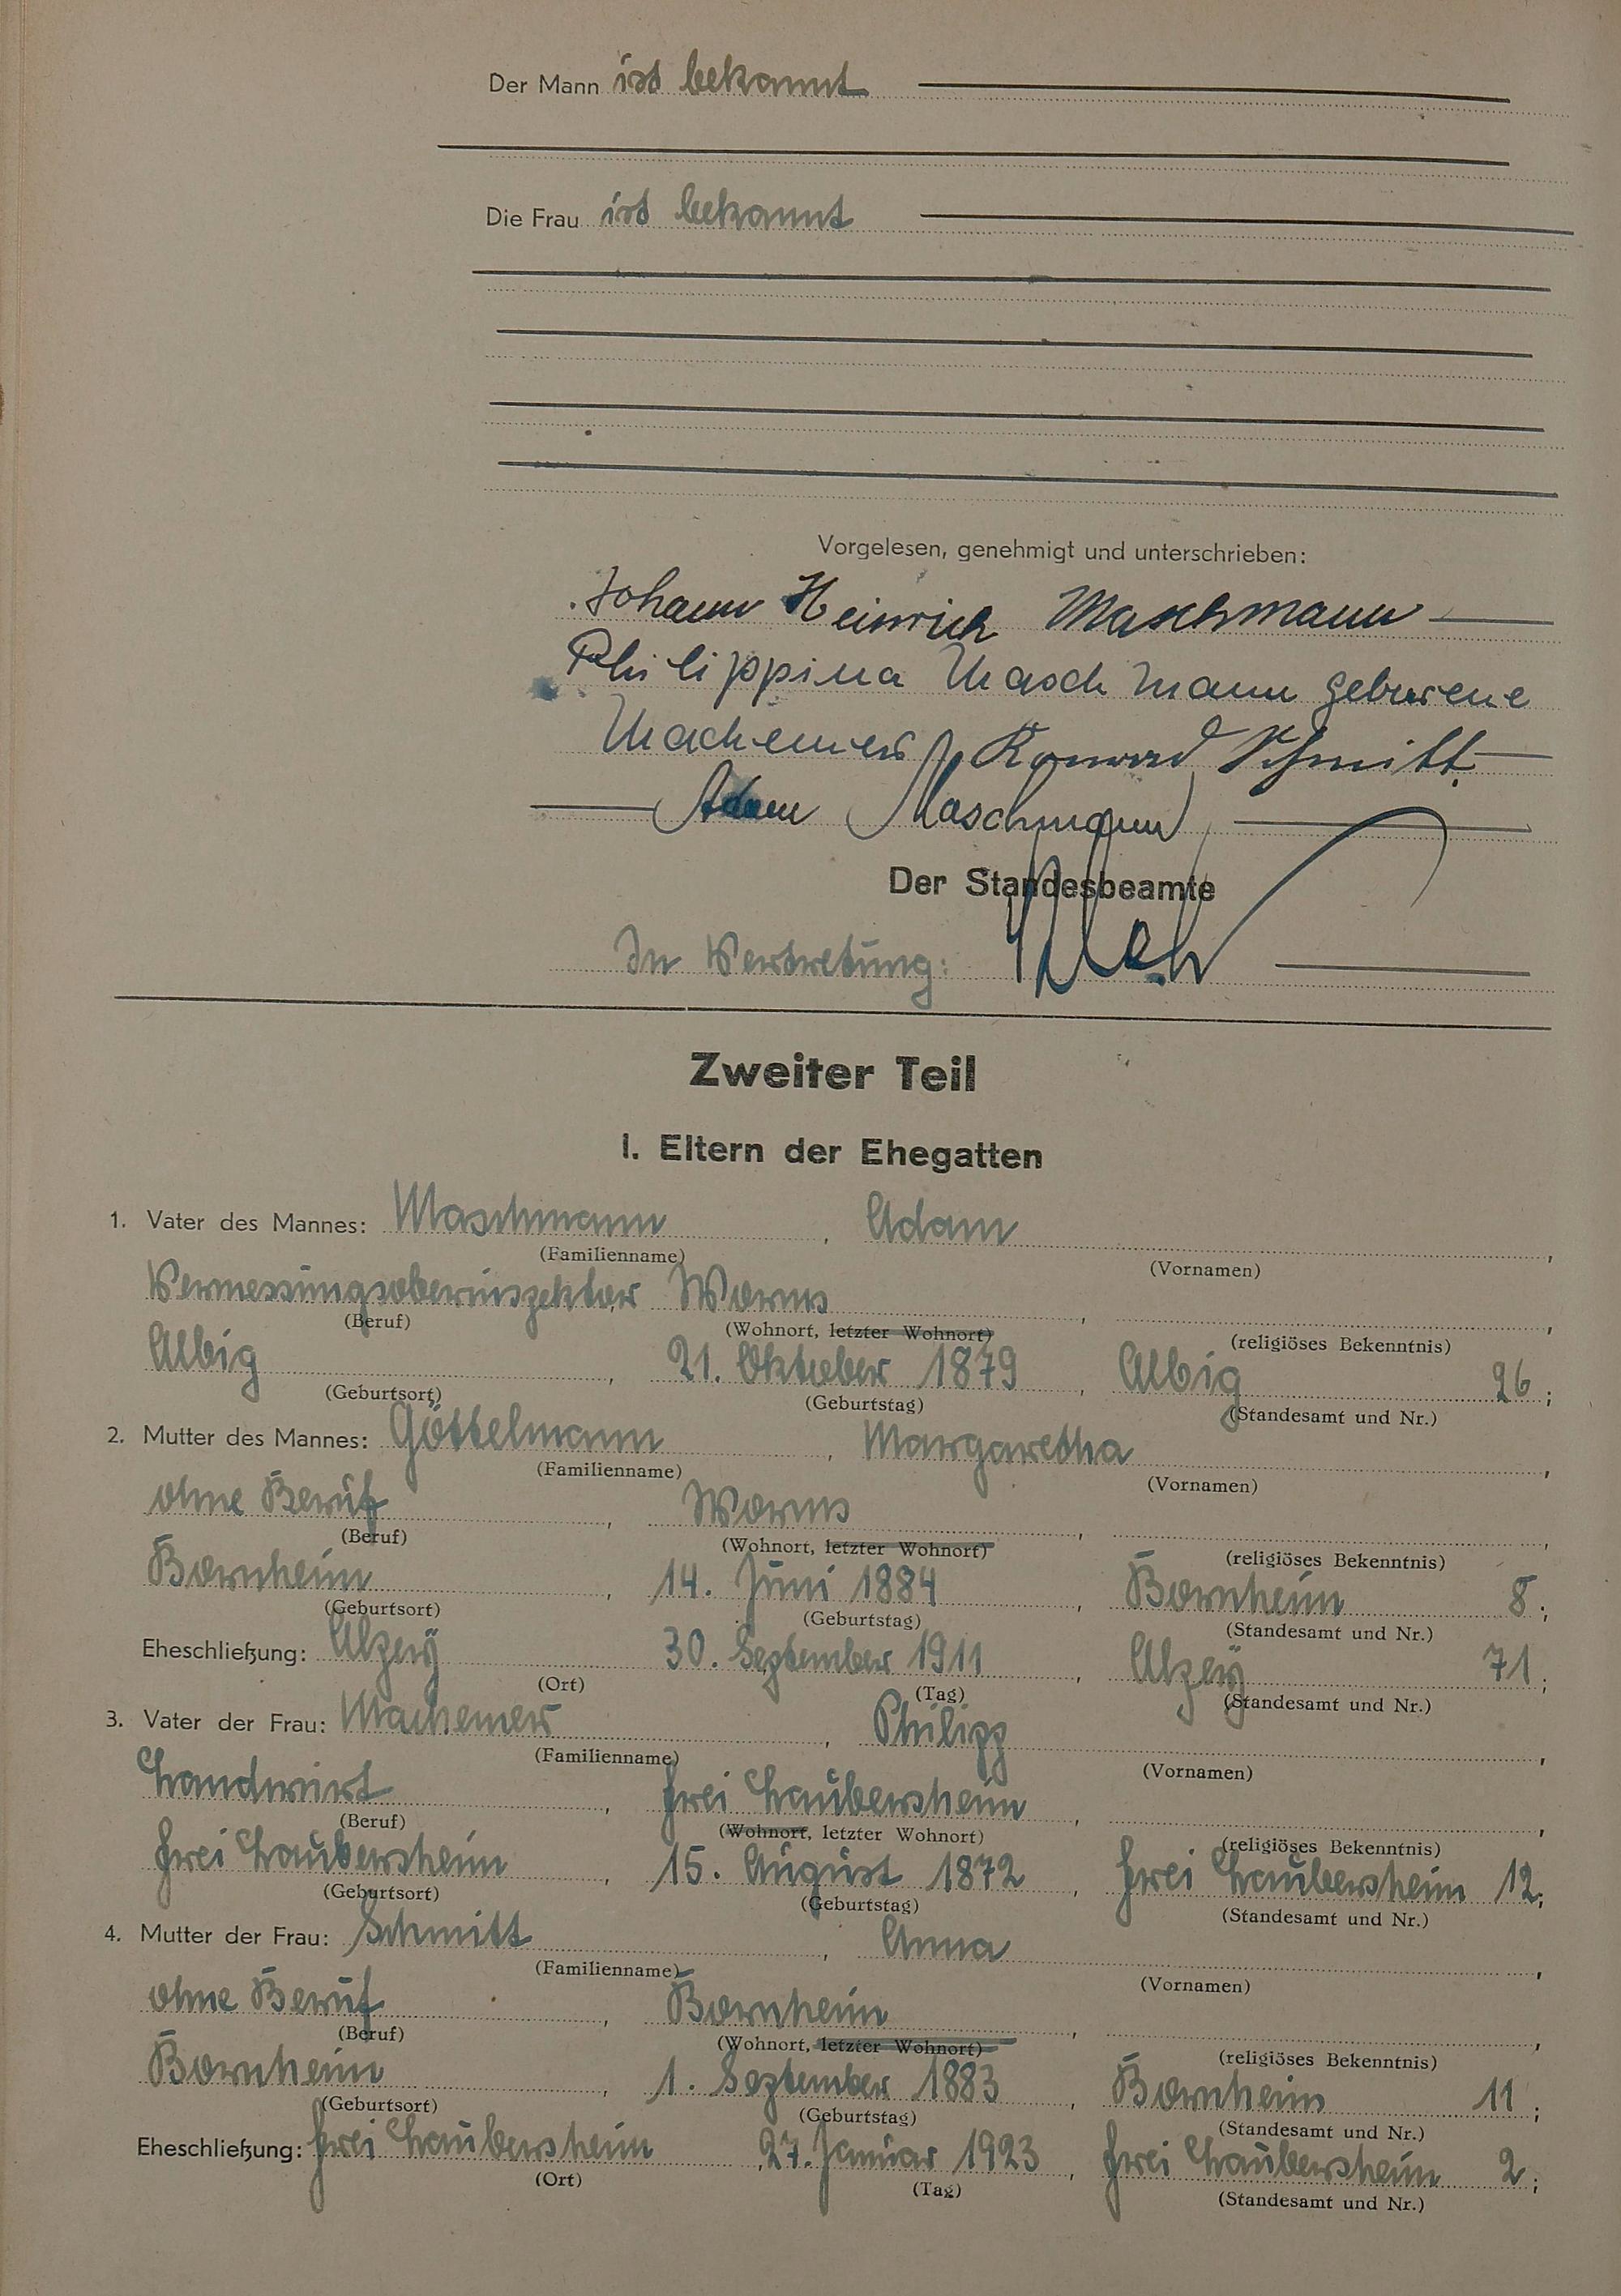 Der Mann ist bekannt
Die Frau ist bekannt
Vorgelesen, genehmigt und unterschrieben:
Johann Heinrich Maschmann
Philippina Maschmann geborene
Machemer, Konrad Schmitt
Adam Maschmann
Der Standesbeamte
In Vertretung:
Zweiter Teil
I. Eltern der Ehegatten
1. Vater des Mannes: Maschmann, Adam,
(Familienname) (Vornamen)
Vermessungsoberinspektor Worms, ,
(Beruf) (Wohnort, letzter Wohnort) (religiöses Bekenntnis)
Albig, 21. Oktober 1879, Albig 26;
(Geburtsort) (Geburtstag) (Standesamt und Nr.)
2. Mutter des Mannes: Göttelmann, Margaretha,
(Familienname) (Vornamen)
ohne Beruf, Worms, ,
(Beruf) (Wohnort, letzter Wohnort) (religiöses Bekenntnis)
Bornheim, 14. Juni 1884, Bornheim 8;
(Geburtsort) (Geburtstag) (Standesamt und Nr.)
Eheschließung: Alzey 30. September 1911, Alzey 71;
(Ort) (Tag) (Standesamt und Nr.)
3. Vater der Frau: Machemer, Philipp,
(Familienname) (Vornamen)
Landwirt, Frei Laubersheim, ,
(Beruf) (Wohnort, letzter Wohnort) (religiöses Bekenntnis)
Frei Laubersheim, 15. August 1872, Frei Laubersheim 12;
(Geburtsort) (Geburtstag) (Standesamt und Nr.)
4. Mutter der Frau: Schmitt, Anna,
(Familienname) (Vornamen)
ohne Beruf, Bornheim, ,
(Beruf) (Wohnort, letzter Wohnort) (religiöses Bekenntnis)
Bornheim, 1. September 1883, Bornheim 11;
(Geburtsort) (Geburtstag) (Standesamt und Nr.)
Eheschließung: Frei Laubersheim 27. Januar 1923, Frei Laubersheim 2;
(Ort) (Tag) (Standesamt und Nr.)